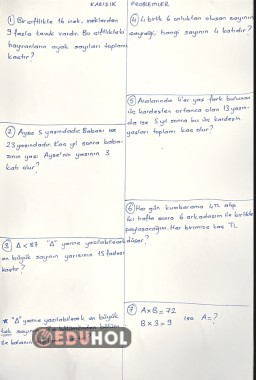 KARIŞIK PROBLEMLER
① Bir çiftlikte 16 inek, ineklerden
9 fazla tavuk vardır. Bu çiftlikteki
hayvanların ayak sayıları toplamı
kaçtır?
② Ayşe 5 yaşındadır. Babası ise
23 yaşındadır. Kaç yıl sonra baba-
sının yaşı Ayşe'nin yaşının 3
katı olur?
③ Δ < 87 "Δ" yerine yazılabilecek
en büyük sayının yarısının 15 fazlası
kaçtır?
* "Δ" yerine yazılabilecek en büyük
tek
④ 4 birlik 6 onluktan oluşan sayının
çeyreği, hangi sayının 4 katıdır?
⑤ Aralarında 4'er yaş fark bulunan
üç kardeşten ortanca olan 13 yaşın-
da ise 5 yıl sonra bu üç kardeşin
yaşları toplamı kaç olur?
⑥ Her gün kumbarama 4 TL atıp
iki hafta sonra 6 arkadaşım ile birlikte
paylaşacağım. Her birimize kaç TL
düşer?
⑦ A x B = 72
B x 3 = 9 ise A = ?
EDUHOL